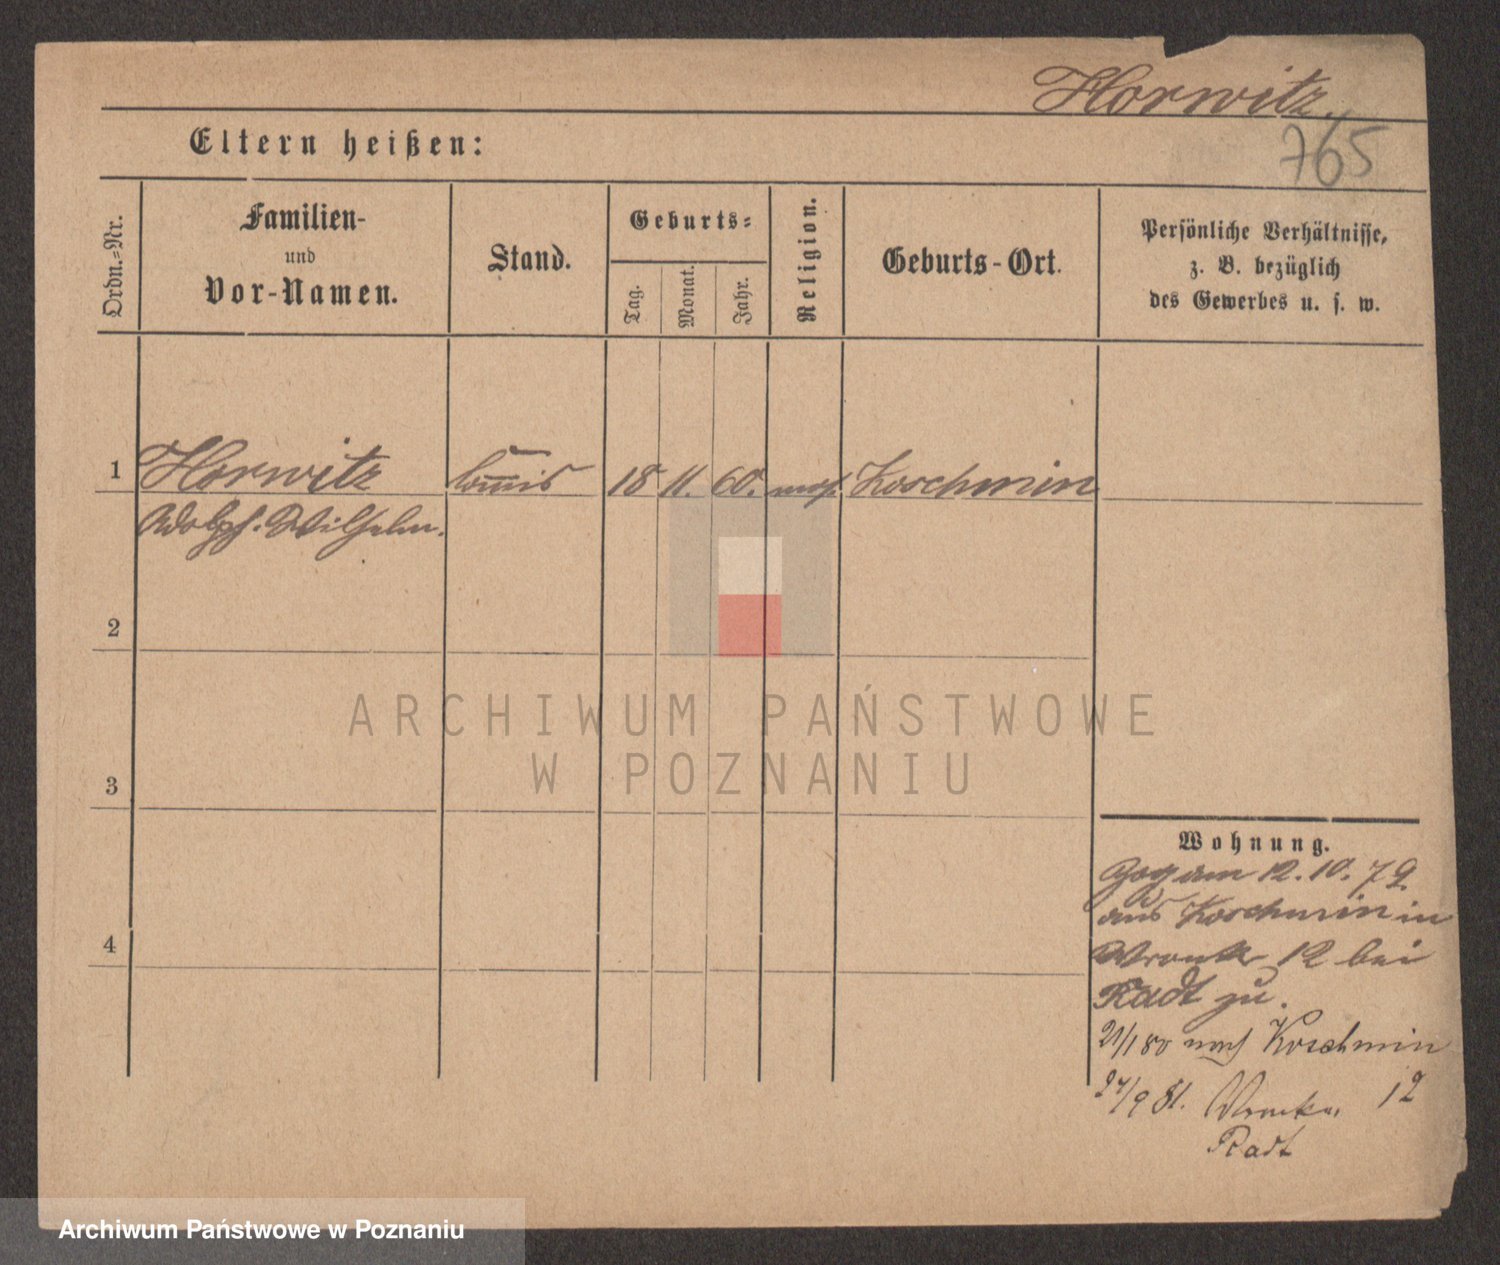 Horwitz.
765
Eltern heißen:
Ordn.-Nr.
Familien-
und
Vor-Namen.
Stand.
Geburts-
Tag.
Monat.
Jahr.
Religion.
Geburts-Ort.
Persönliche Verhältnisse,
z. B. bezüglich
des Gewerbes u. s. w.
1 Horwitz Com̅is 18 11. 60. mos. Koschmin
Adolph. Wilhelm.
2
ARCHIWUM PAŃSTWOWE
W POZNANIU
3
Wohnung.
Zog am 12. 10. 79.
aus Koschmin in
4
Wronker 12 bei
Radt zu.
21/1 80 nach Koschmin
27/9 81. Wronker 12
Radt
Archiwum Państwowe w Poznaniu